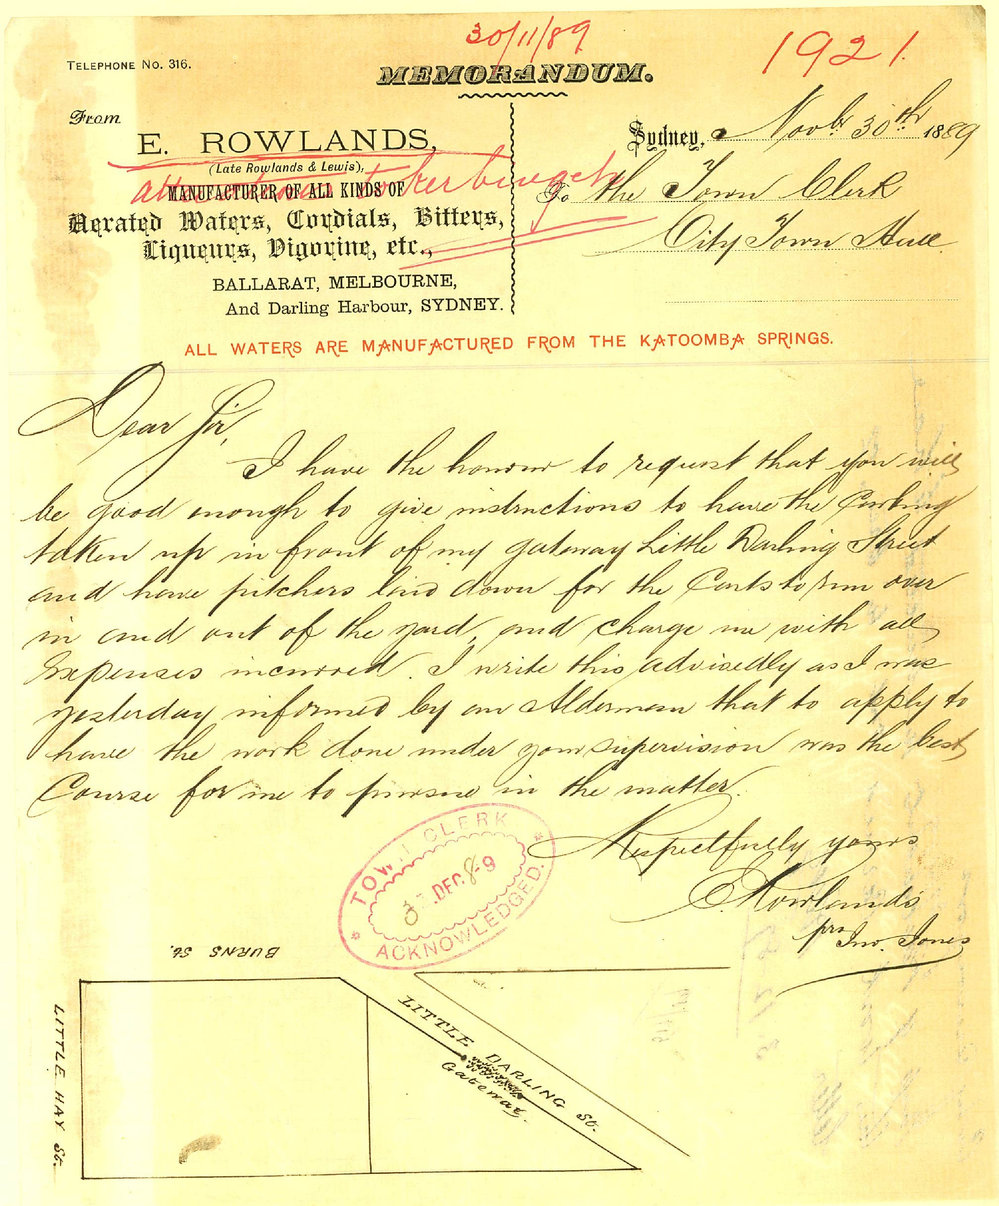 30/11/89
1921.
TELEPHONE NO. 316.
MEMORANDUM.
From
E. ROWLANDS,
(Late Rowlands & Lewis),
MANUFACTURER OF ALL KINDS OF
Aerated Waters, Cordials, Bitters,
Liqueurs, Vigorine, etc.,
BALLARAT, MELBOURNE,
And Darling Harbour, SYDNEY.
Sydney, Novbr 30th 1889
To the Town Clerk
City Town Hall
ALL WATERS ARE MANUFACTURED FROM THE KATOOMBA SPRINGS.
Dear Sir,
I have the honour to request that you will
be good enough to give instructions to have the Curbing
taken up in front of my gateway Little Darling Street
and have pitchers laid down for the Carts to run over
in and out of the yard, and charge me with all
Expenses incurred. I write this advisedly as I was
yesterday informed by an Alderman that to apply to
have the work done under your supervision was the best
Course for me to pursue in the matter.
Respectfully yours
E Rowlands
pro Jno. Jones
TOWN CLERK
DEC. 89
ACKNOWLEDGED.
BURNS St.
LITTLE HAY St.
LITTLE DARLING St.
Gateway.